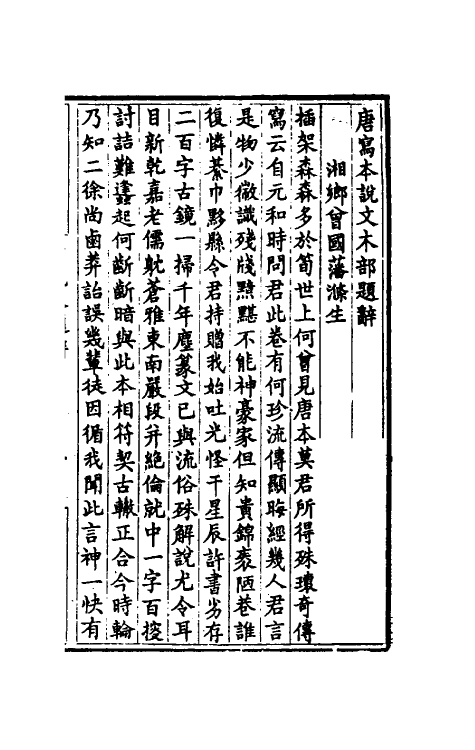 唐寫本說文木部題辭
湘鄉曾國藩滌生
插架森森多於筍世上何曾見唐本莫君所得殊瓌奇傳
寫云自元和時問君此卷有何珍流傳顯晦經幾人君言
是物少徵識殘牋黯黮不能神豪家但知貴錦袠陋巷誰
復憐綦巾黟縣令君持贈我始吐光怪干星辰許書劣存
二百字古鏡一掃千年塵篆文已與流俗殊解說尤令耳
目新乾嘉老儒躭蒼雅東南嚴段幷絶倫就中一字百搜
討詰難蠭起何齗齗暗與此本相符契古轍正合今時輪
乃知二徐尚鹵莽詒誤幾輩徒因循我聞此言神一快有